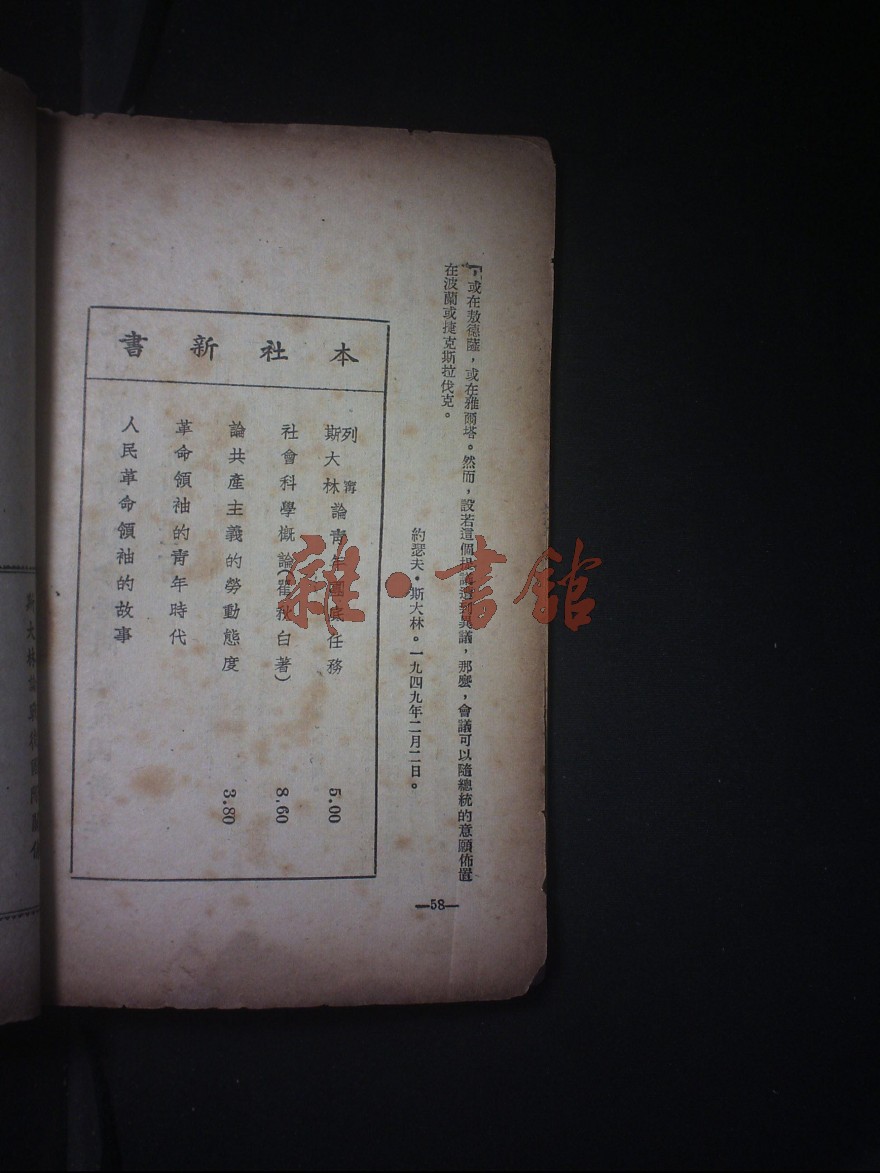 ，或在敖德薩，或在雅爾塔。然而，設若這個提議遭到異議，那麼，會議可以隨總統的意願佈置
在波蘭或捷克斯拉伐克。
約瑟夫·斯大林。一九四九年二月二日。
—58—
本社新書
列寧
斯大林論青年團底任務 5.00
社會科學概論(瞿秋白著) 8.60
論共產主義的勞動態度 3.80
革命領袖的青年時代
人民革命領袖的故事
雜·書館